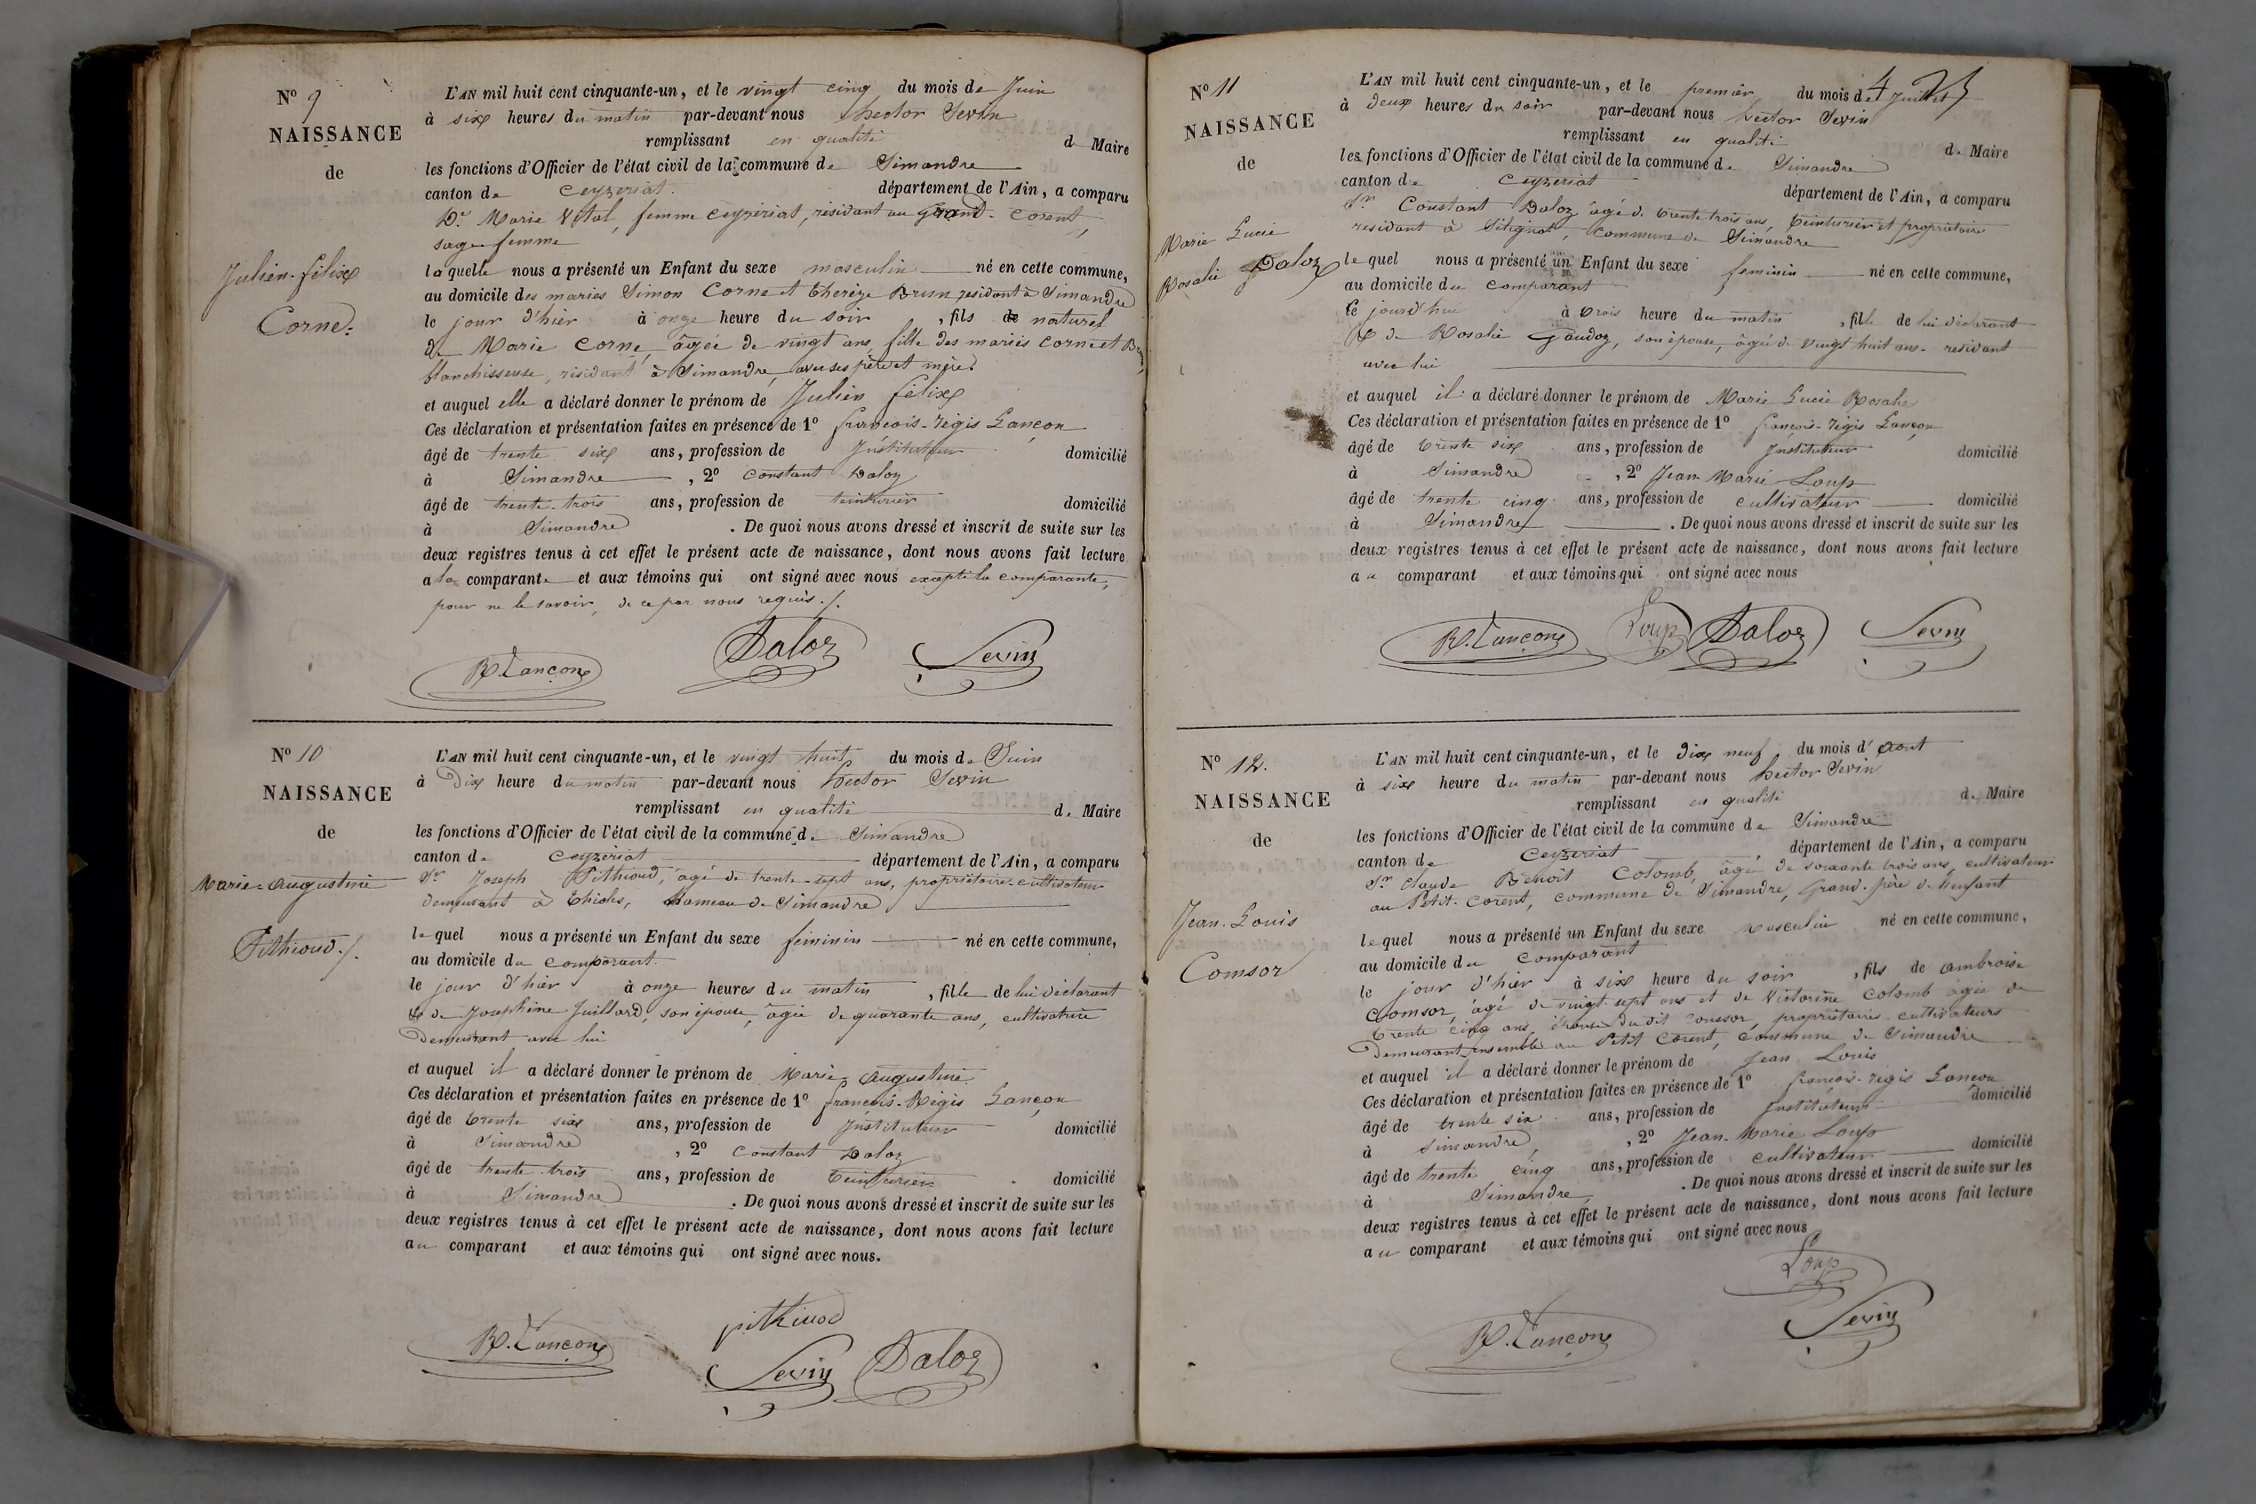 N° 9
NAISSANCE
de
Julien-félix
Corne.
L'AN mil huit cent cinquante-un, et le vingt cinq du mois de Juin
à six heures du matin par-devant nous hector Sevin
remplissant en qualité de Maire
les fonctions d'Officier de l'état civil de la commune de Simandre
canton de Ceyzeriat département de l'Ain, a comparu
De Marie Vital, femme Ceyzériat, résidant au Grand-Corent,
sage-femme
laquelle nous a présenté un Enfant du sexe masculin né en cette commune,
au domicile des mariés Simon Corne et Therèze Brun residant à Simandre
le jour d'hier à onze heure du soir, fils de naturel
de Marie Corne, âgée de vingt ans, fille des mariés Corne et Brun,
blanchisseuse, résidant à Simandre, avec ses père et mère.
et auquel elle a déclaré donner le prénom de Julien félix
Ces déclaration et présentation faites en présence de 1° françois-régis Lançon
âgé de trente six ans, profession de Instituteur domicilié
à Simandre, 2° Constant Daloz
âgé de trente-trois ans, profession de teinturier domicilié
à Simandre. De quoi nous avons dressé et inscrit de suite sur les
deux registres tenus à cet effet le présent acte de naissance, dont nous avons fait lecture
a la comparante et aux témoins qui ont signé avec nous excepté la comparante,
pour ne le savoir, de ce par nous requis./.
R. Lançon Daloz Sevin
N° 10
NAISSANCE
de
Marie-Augustine
Pithioud./.
L'AN mil huit cent cinquante-un, et le vingt huit du mois de Juin
à Dix heure du matin par-devant nous hector Sevin
remplissant en qualité de Maire
les fonctions d'Officier de l'état civil de la commune de Simandre
canton de Ceyzériat département de l'Ain, a comparu
Sr Joseph Pithioud, âgé de trente-sept ans, propriétaire-cultivateur
demeurant à Thioles, hameau de Simandre
lequel nous a présenté un Enfant du sexe féminin né en cette commune,
au domicile du comparant
le jour d'hier à onze heures du matin, fille de lui déclarant
et de Josephine Juillard, son épouse, âgée de quarante ans, cultivatrice
Demeurant avec lui
et auquel il a déclaré donner le prénom de Marie Augustine
Ces déclaration et présentation faites en présence de 1° françois-Régis Lançon
âgé de trente six ans, profession de Instituteur domicilié
à Simandre, 2° Constant Daloz
âgé de trente-trois ans, profession de teinturier domicilié
à Simandre. De quoi nous avons dressé et inscrit de suite sur les
deux registres tenus à cet effet le présent acte de naissance, dont nous avons fait lecture
au comparant et aux témoins qui ont signé avec nous.
pithioud
R. Lançon Sevin Daloz
N° 11
NAISSANCE
de
Marie Lucie
Rosalie Daloz
L'AN mil huit cent cinquante-un, et le premier du mois de Juillet
à deux heures du soir par-devant nous hector Sevin
remplissant en qualité de Maire
les fonctions d'Officier de l'état civil de la commune de Simandre
canton de Ceyzeriat département de l'Ain, a comparu
Sr Constant Daloz âgé de trente trois ans, teinturier et propriétaire
residant à Sélignat, commune de Simandre
lequel nous a présenté un Enfant du sexe feminin né en cette commune,
au domicile du comparant
le jourd'hui à trois heure du matin, fille de lui déclarant
et de Rosalie Gaudoz, son épouse, âgée de vingt huit ans residant
avec lui
et auquel il a déclaré donner le prénom de Marie Lucie Rosalie
Ces déclaration et présentation faites en présence de 1° françois-régis Lançon
âgé de trente six ans, profession de Instituteur domicilié
à Simandre, 2° Jean Marie Loup
âgé de trente cinq ans, profession de cultivateur domicilié
à Simandre. De quoi nous avons dressé et inscrit de suite sur les
deux registres tenus à cet effet le présent acte de naissance, dont nous avons fait lecture
au comparant et aux témoins qui ont signé avec nous
R. Lançon Loup Daloz Sevin
N° 12.
NAISSANCE
de
Jean-Louis
Comsor
L'AN mil huit cent cinquante-un, et le Dix neuf du mois d'Aout
à six heure du matin par-devant nous hector Sevin
remplissant en qualité de Maire
les fonctions d'Officier de l'état civil de la commune de Simandre
canton de Ceyzeriat département de l'Ain, a comparu
Sr Claude Benoit Colomb, âgé de soixante trois ans, cultivateur
au Petit-Corent, commune de Simandre, Grand-père de l'enfant
lequel nous a présenté un Enfant du sexe masculin né en cette commune,
au domicile du comparant
le jour d'hier à six heure du soir, fils de Ambroise
Comsor, âgé de vingt-sept ans et de Victorine Colomb âgée de
trente cinq ans, épouse du dit Comsor, propriétaires cultivateurs
Demeurant ensemble au Petit Corent, commune de Simandre
et auquel il a déclaré donner le prénom de Jean Louis
Ces déclaration et présentation faites en présence de 1° françois-régis Lançon
âgé de trente six ans, profession de Instituteur domicilié
à Simandre, 2° Jean-Marie Loup
âgé de trente cinq ans, profession de cultivateur domicilié
à Simandre. De quoi nous avons dressé et inscrit de suite sur les
deux registres tenus à cet effet le présent acte de naissance, dont nous avons fait lecture
au comparant et aux témoins qui ont signé avec nous
Loup
R. Lançon Sevin